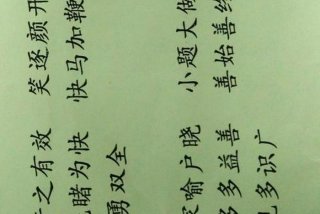 之有效 笑逐颜开
先睹为快 快马加鞭
勇双全
家喻户晓 小题大做
多多益善 善始善终
见多识广